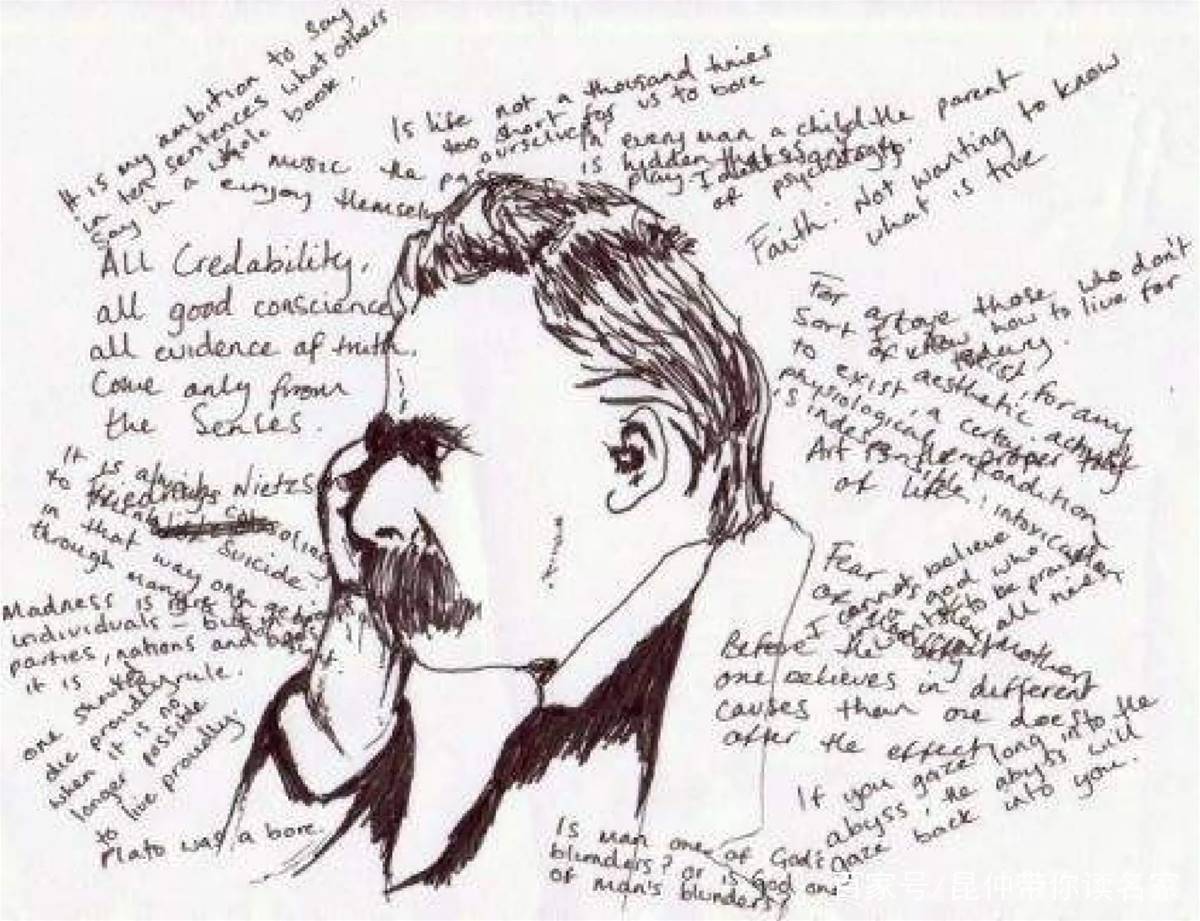 It is my ambition to say
in ten sentences what others
say in a whole book.
Is life not a thousand times
too short for us to bore
ourselves?
music the pas
eunjoy themselv
In every man a child
is hidden that
play.
the parent
of psychology.
Faith: Not wanting to know
what is true
All Credability,
all good conscience
all evidence of truth.
Come only from
the Senses.
For art to exist, for any
sort of aesthetic activity
to exist, a certain
physiological precondition
is indespensible: intoxicat
I love those who don't
know how to live for
today.
Art is the proper task
of life.
It is always consoling
to think of suicide
in that way one gets
through many a bad
night.
Friedrich Nietzs
Madness is rare in
individuals – but in
parties, nations and
it is the rule.
one should
die proudly
when it is no
longer possible
to live proudly.
Plato was a bore.
Fear
of
mother
I cannot believe
in a god who
wants to be praised
all
Before the effect
one believes in different
causes than one does
after the effect
If you gaze long into the
abyss, the abyss will
gaze back into you.
Is man one of God's
blunders? or is God one
of man's blunders?
百家号/昆仲带你读名家